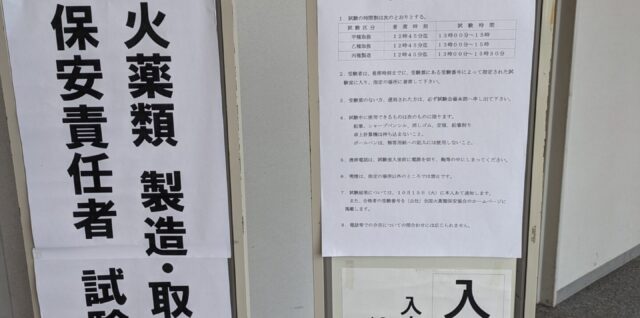 火薬類 製造・取
保安責任者 試験
1．試験の時間割は次のとおりとする。
試験区分 着席時刻 試験時間
甲種取扱 12時45分迄 13時00分～15時
乙種取扱 12時45分迄 13時00分～15時
丙種製造 12時45分迄 13時00分～15時30分
2．受験者は、着席時刻までに、受験票にある受験番号によって指定された試
験室に入り、指定の場所に着席して下さい。
3．受験票のない方、遅刻された方は、必ず試験会場本部へ申し出て下さい。
4．試験中に使用できるものは次のものに限ります。
鉛筆、シャープペンシル、消しゴム、定規、鉛筆削り
卓上計算機は持ち込まないこと。
ボールペンは、解答用紙への記入には使用しないこと。
5．携帯電話は、試験室入室前に電源を切り、鞄等の中にしまってください。
6．喫煙は、指定の場所以外のところでは禁止です。
7．試験結果については、10月15日（火）に本人あて通知します。
また、合格者の受験番号を（公社）全国火薬類保安協会のホームページに
掲載します。
8．電話等での合否についての問合わせには応じられません。
入
入